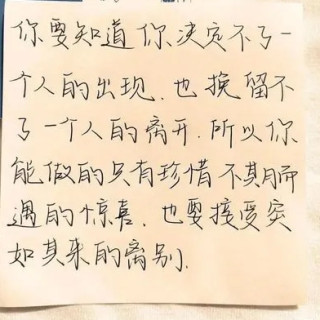 你要知道你决定不了一
个人的出现.也挽留不
了一个人的离开.所以你
能做的只有珍惜不期而
遇的惊喜.也要接受突
如其来的离别.